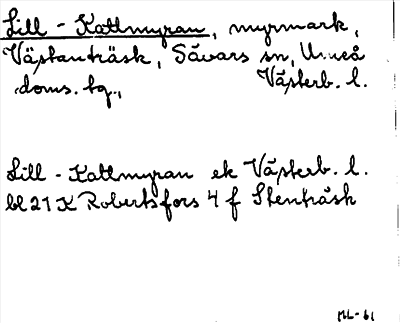 Lill - Kattmyran, myrmark,
Västanträsk, Sävars sn, Umeå
doms. tg., Västerb. l.
Lill - Kattmyran ek Västerb. l.
bl 21 K Robertsfors 4 f Stenträsk
ML-61